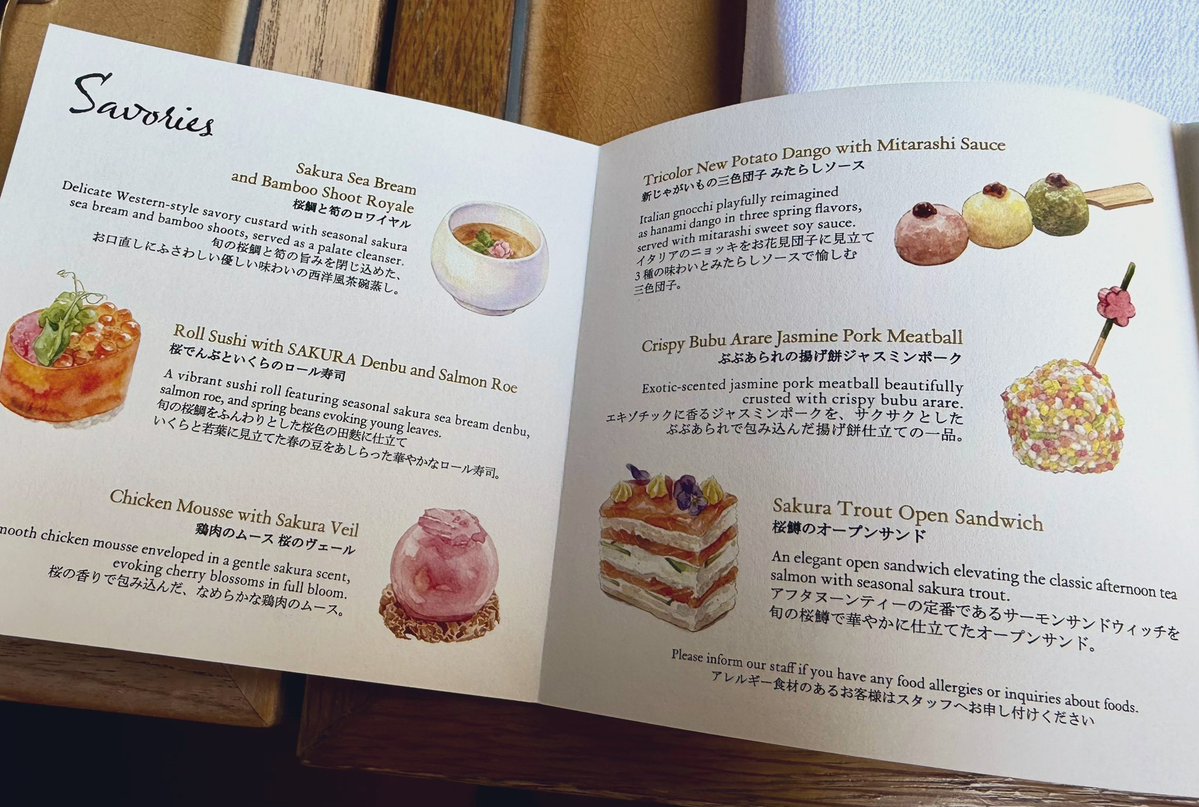 Savories
Sakura Sea Bream
and Bamboo Shoot Royale
桜鯛と筍のロワイヤル
Delicate Western-style savory custard with seasonal sakura
sea bream and bamboo shoots, served as a palate cleanser.
旬の桜鯛と筍の旨みを閉じ込めた、
お口直しにふさわしい優しい味わいの西洋風茶碗蒸し。
Roll Sushi with SAKURA Denbu and Salmon Roe
桜でんぶといくらのロール寿司
A vibrant sushi roll featuring seasonal sakura sea bream denbu,
salmon roe, and spring beans evoking young leaves.
旬の桜鯛をふんわりとした桜色の田麩に仕立て
いくらと若葉に見立てた春の豆をあしらった華やかなロール寿司。
Chicken Mousse with Sakura Veil
鶏肉のムース 桜のヴェール
mooth chicken mousse enveloped in a gentle sakura scent,
evoking cherry blossoms in full bloom.
桜の香りで包み込んだ、なめらかな鶏肉のムース。
Tricolor New Potato Dango with Mitarashi Sauce
新じゃがいもの三色団子 みたらしソース
Italian gnocchi playfully reimagined
as hanami dango in three spring flavors,
served with mitarashi sweet soy sauce.
イタリアのニョッキをお花見団子に見立て
3種の味わいとみたらしソースで愉しむ
三色団子。
Crispy Bubu Arare Jasmine Pork Meatball
ぶぶあられの揚げ餅ジャスミンポーク
Exotic-scented jasmine pork meatball beautifully
crusted with crispy bubu arare.
エキゾチックに香るジャスミンポークを、サクサクとした
ぶぶあられで包み込んだ揚げ餅仕立ての一品。
Sakura Trout Open Sandwich
桜鱒のオープンサンド
An elegant open sandwich elevating the classic afternoon tea
salmon with seasonal sakura trout.
アフタヌーンティーの定番であるサーモンサンドウィッチを
旬の桜鱒で華やかに仕立てたオープンサンド。
Please inform our staff if you have any food allergies or inquiries about foods.
アレルギー食材のあるお客様はスタッフへお申し付けください